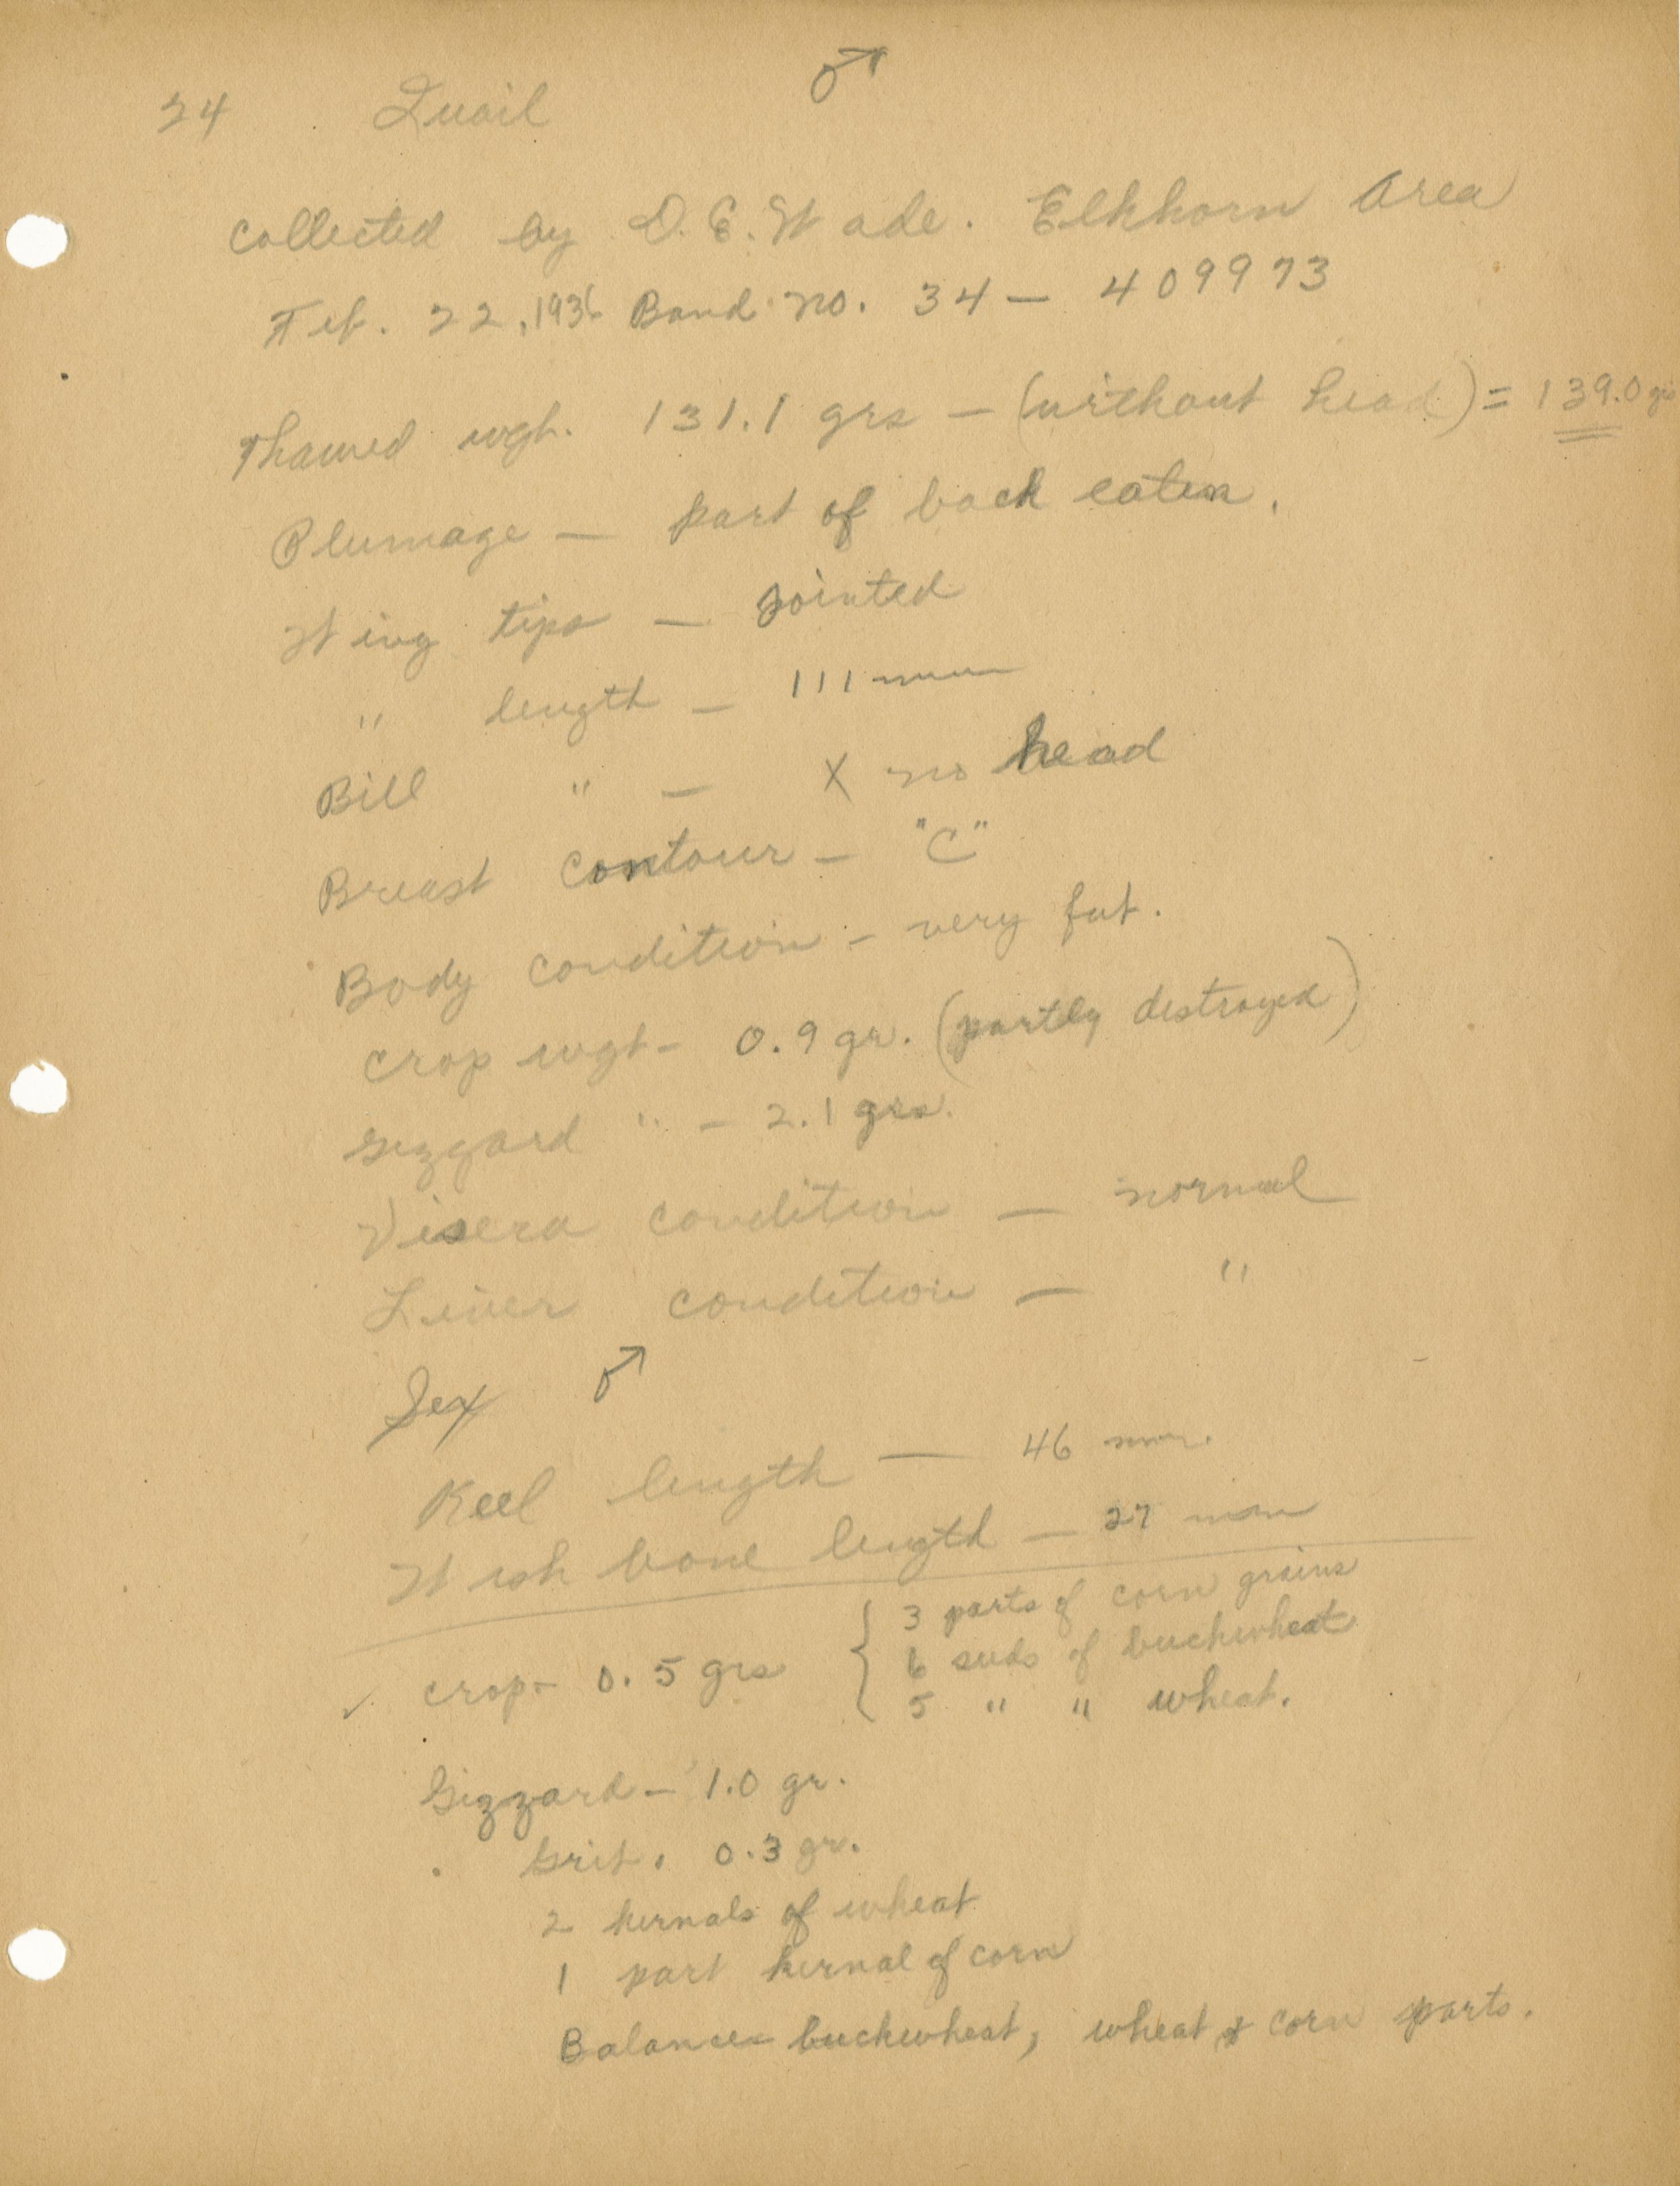 ♂
24 Quail
Collected by D. E. Wade. Elkhorn Area
Feb. 22, 1936 Band no. 34 — 409973
Thawed wgt. 131.1 grs — (without head) = 139.0 grs
Plumage — part of back eaten.
Wing tips — pointed
" length — 111 mm
Bill " — X no head
Breast contour — "C"
Body condition — very fat.
Crop wgt — 0.9 gr. (partly destroyed)
Gizzard " — 2.1 grs.
Visera condition — normal
Liver condition — "
Sex ♂
Keel length — 46 mm.
Wish bone length — 27 mm
3 parts of corn grains
✓ Crop — 0.5 grs { 6 seeds of buckwheat
5 " " wheat.
Gizzard — 1.0 gr.
Grit. 0.3 gr.
2 kernals of wheat
1 part kernal of corn
Balance = buckwheat, wheat & corn parts.